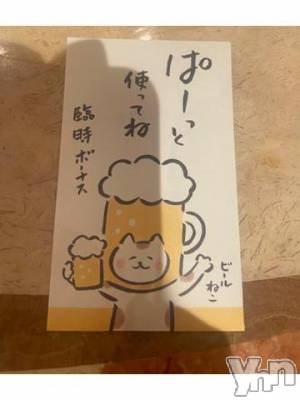 ぱーっと
使ってね
臨時ボーナス
ビール
ねこ